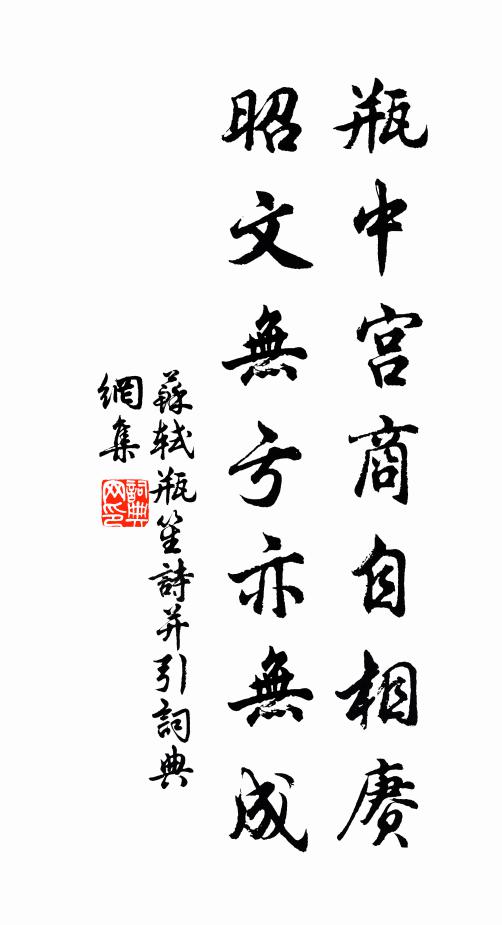 瓶中宫商自相赓
昭文無亏亦無成
蘇軾瓶笙詩并引詞典
網集
詞典網印